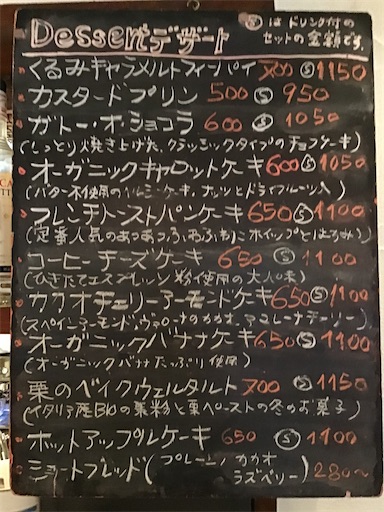 Dessert デザート
Ⓢは ドリンク付の
セットの金額です。
くるみキャラメルトフィーパイ 700 Ⓢ 1150
カスタードプリン 500 Ⓢ 950
ガトー・オ・ショコラ 600 Ⓢ 1050
(しっとり焼き上げた、クラシックタイプのチョコケーキ)
オーガニックキャロットケーキ 600 Ⓢ 1050
(バター不使用のヘルシーケーキ、ナッツとドライフルーツ入)
フレンチトーストパンケーキ 650 Ⓢ 1100
(定番人気のあつあつ、ふわふわにホイップとはちみつ)
コーヒーチーズケーキ 650 Ⓢ 1100
(ひきたてエスプレッソ粉使用の大人味)
カカオチェリーアーモンドケーキ 650 Ⓢ 1100
(スペインアーモンド、ヴァローナのカカオ、アマレーナチェリー)
オーガニックバナナケーキ 650 Ⓢ 1100
(オーガニックバナナたっぷり使用)
栗のベイクウェルタルト 700 Ⓢ 1150
(イタリア産BIOの栗粉と栗ペーストの冬のお菓子)
ホットアップルケーキ 650 Ⓢ 1100
ショートブレッド(プレーン、カカオ
ラズベリー) 280〜